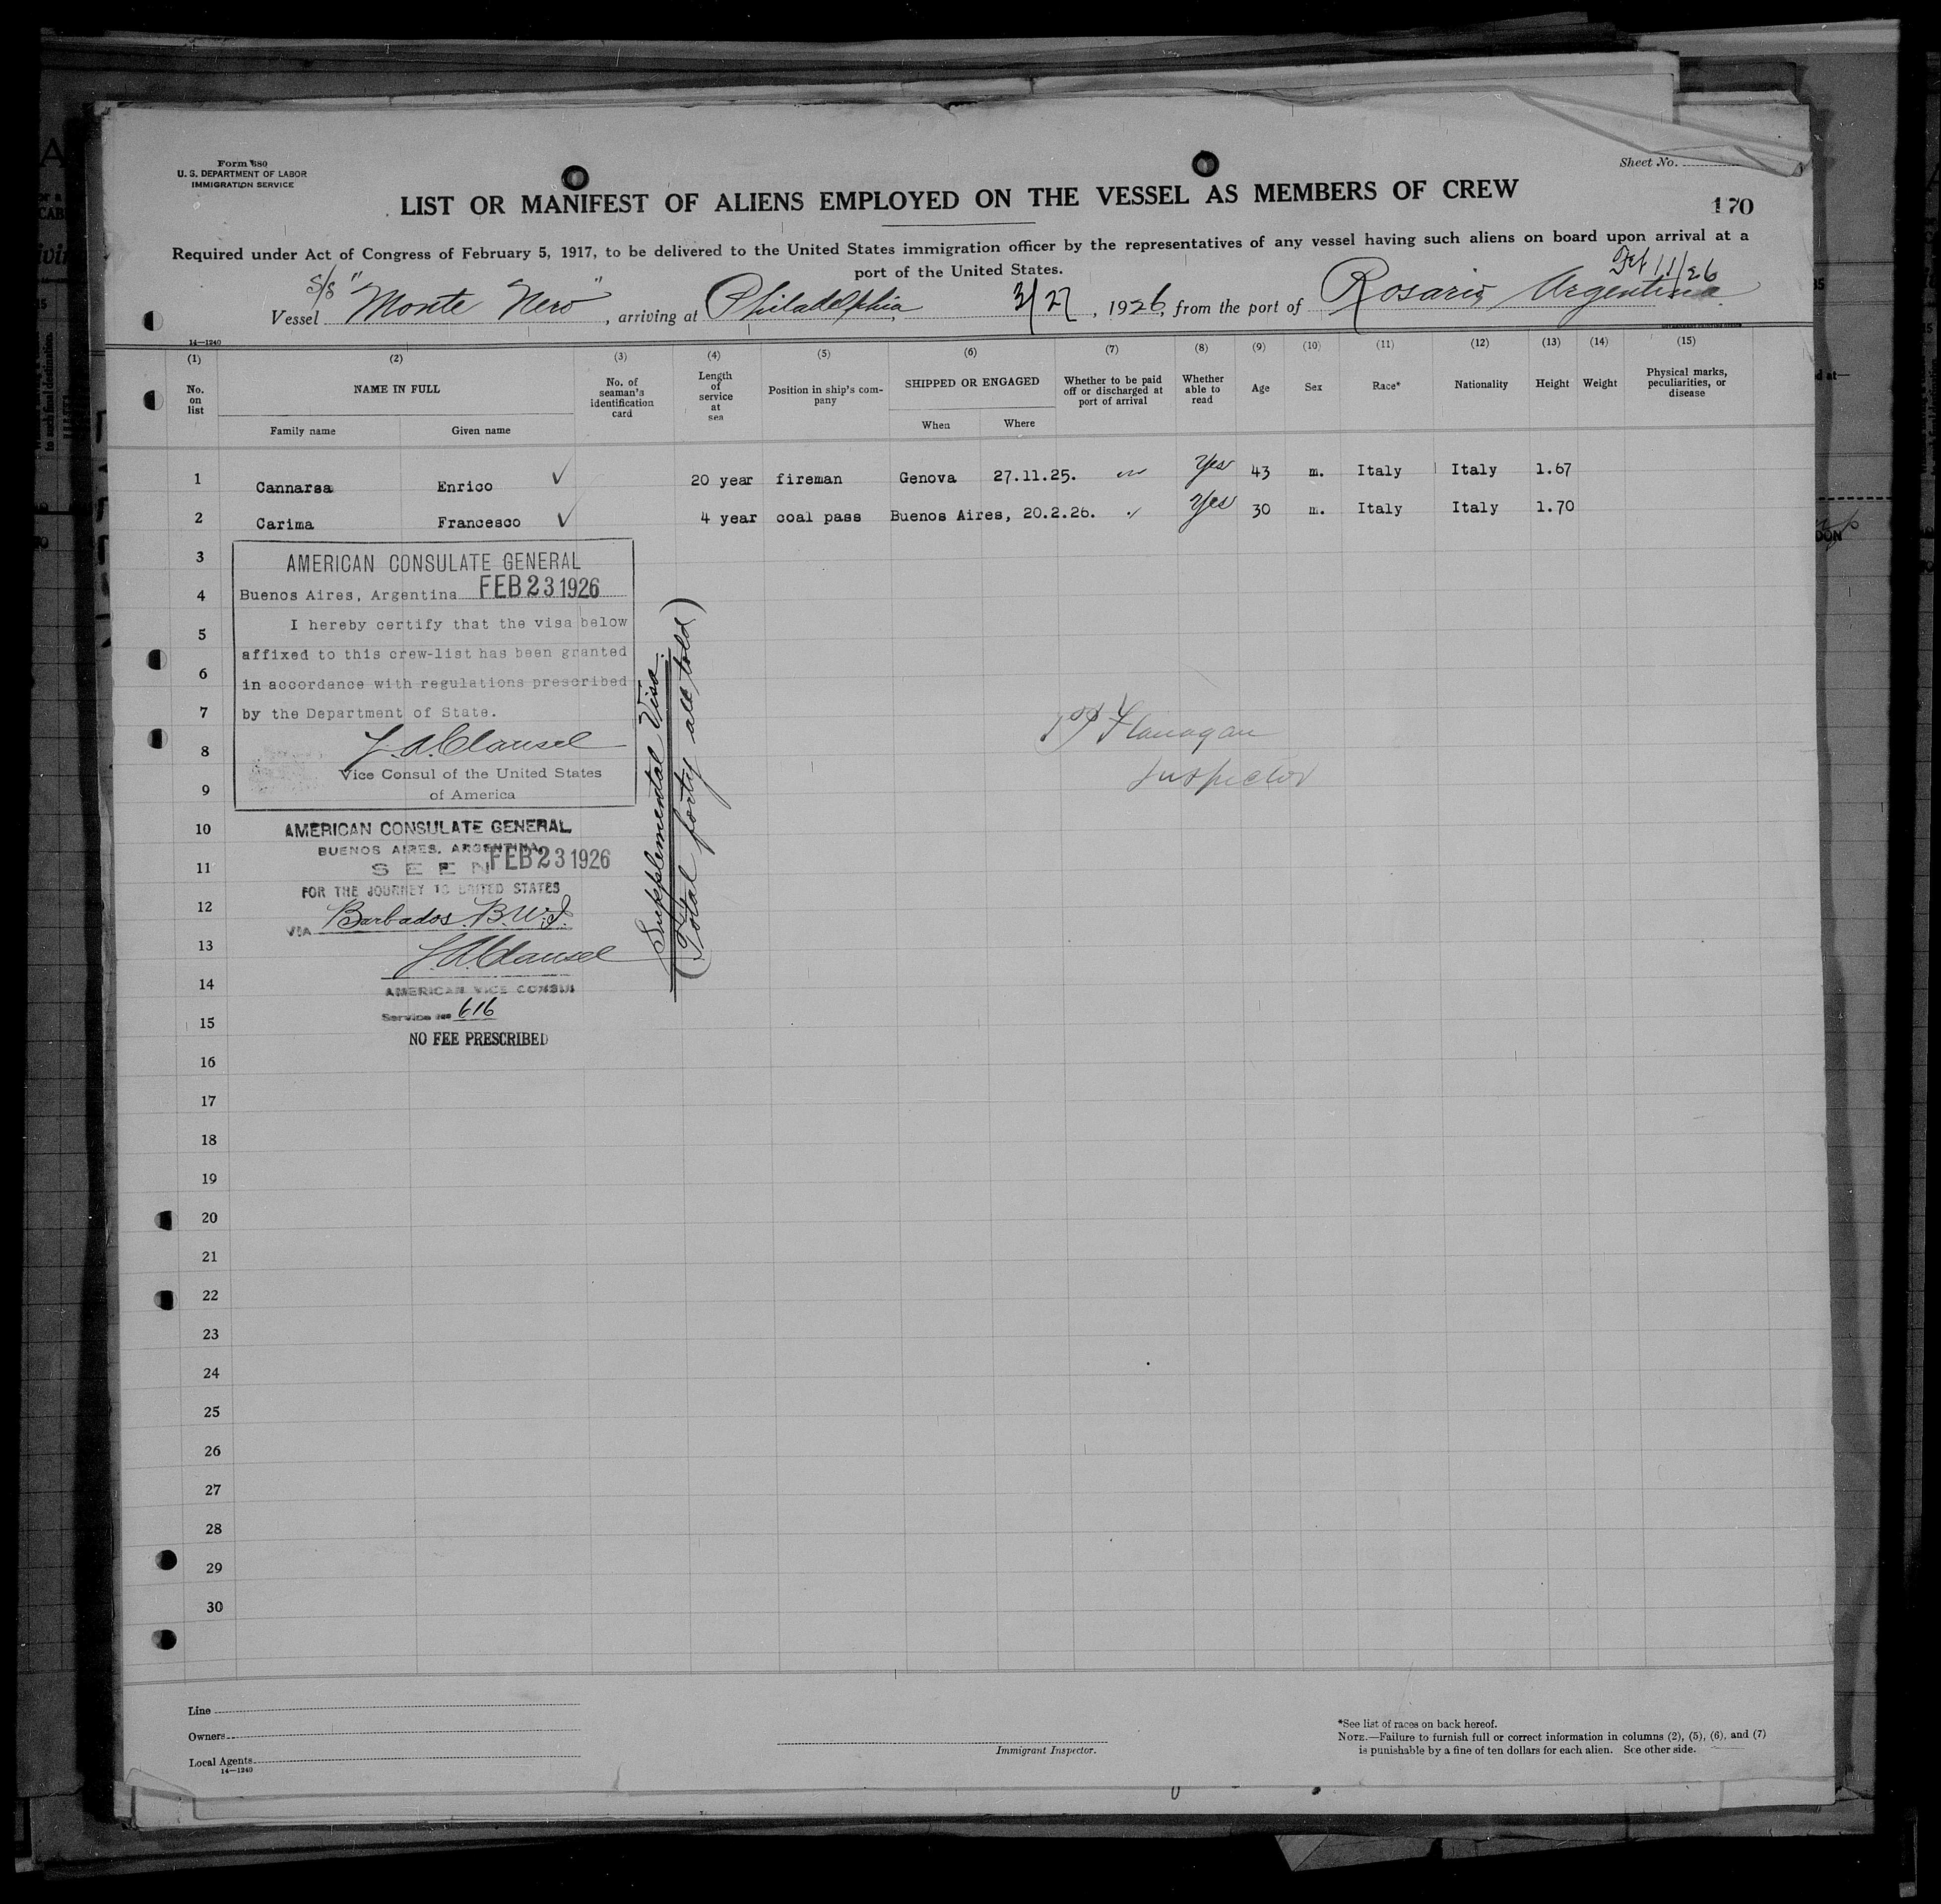 Form 680
U. S. DEPARTMENT OF LABOR
IMMIGRATION SERVICE
Sheet No.
LIST OR MANIFEST OF ALIENS EMPLOYED ON THE VESSEL AS MEMBERS OF CREW
170
Required under Act of Congress of February 5, 1917, to be delivered to the United States immigration officer by the representatives of any vessel having such aliens on board upon arrival at a
port of the United States.
11/26
Vessel S/S "Monte Nero", arriving at Philadelphia 3/27, 1926, from the port of Rosario Argentina
14—1240
(1) (2) (3) (4) (5) (6) (7) (8) (9) (10) (11) (12) (13) (14) (15)
No. on list NAME IN FULL No. of seaman's identification card Length of service at sea Position in ship's company SHIPPED OR ENGAGED Whether to be paid off or discharged at port of arrival Whether able to read Age Sex Race* Nationality Height Weight Physical marks, peculiarities, or disease
Family name Given name When Where
1 Cannarsa Enrico ✓ 20 year fireman Genova 27.11.25. Yes 43 m. Italy Italy 1.67
2 Carima Francesco ✓ 4 year coal pass Buenos Aires, 20.2.26. Yes 30 m. Italy Italy 1.70
3
AMERICAN CONSULATE GENERAL
4
Buenos Aires, Argentina FEB 23 1926
5
I hereby certify that the visa below
affixed to this crew-list has been granted
6
in accordance with regulations prescribed
7
by the Department of State.
8
Vice Consul of the United States
9
of America
Supplemental Visa.
(Total forty all told)
Flanagan
Inspector
10
AMERICAN CONSULATE GENERAL
BUENOS AIRES, ARGENTINA
11
SEEN FEB 23 1926
FOR THE JOURNEY TO UNITED STATES
12
VIA Barbados B.W.I.
13
14
AMERICAN VICE CONSUL
15
Service No 616
NO FEE PRESCRIBED
16
17
18
19
20
21
22
23
24
25
26
27
28
29
30
Line
Owners
Local Agents
14—1240
Immigrant Inspector.
*See list of races on back hereof.
NOTE.—Failure to furnish full or correct information in columns (2), (5), (6), and (7)
is punishable by a fine of ten dollars for each alien. See other side.